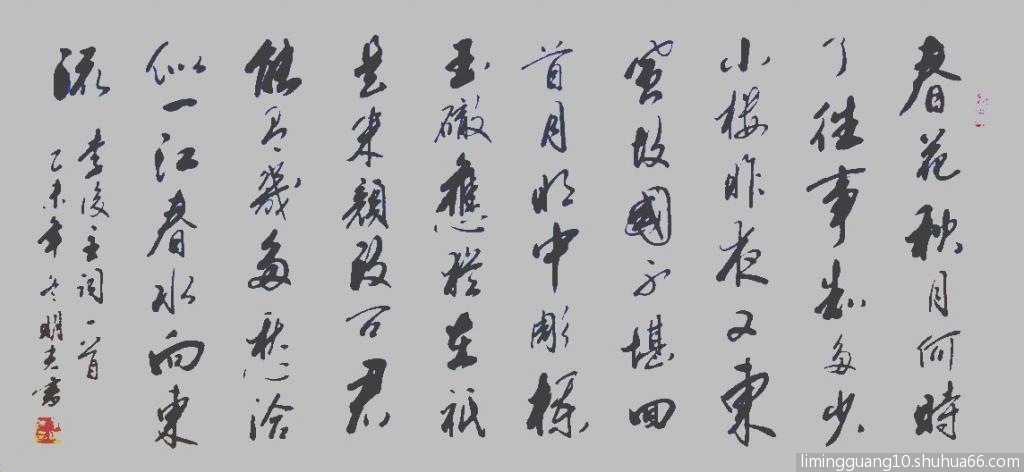 春花秋月何時
了往事知多少
小樓昨夜又東
風故國不堪回
首月明中彫欄
玉砌應猶在祇
是朱顏改問君
能有幾多愁洽
似一江春水向東
流
李後主詞一首
乙未年冬明光書
limingguang10.shuhua66.com